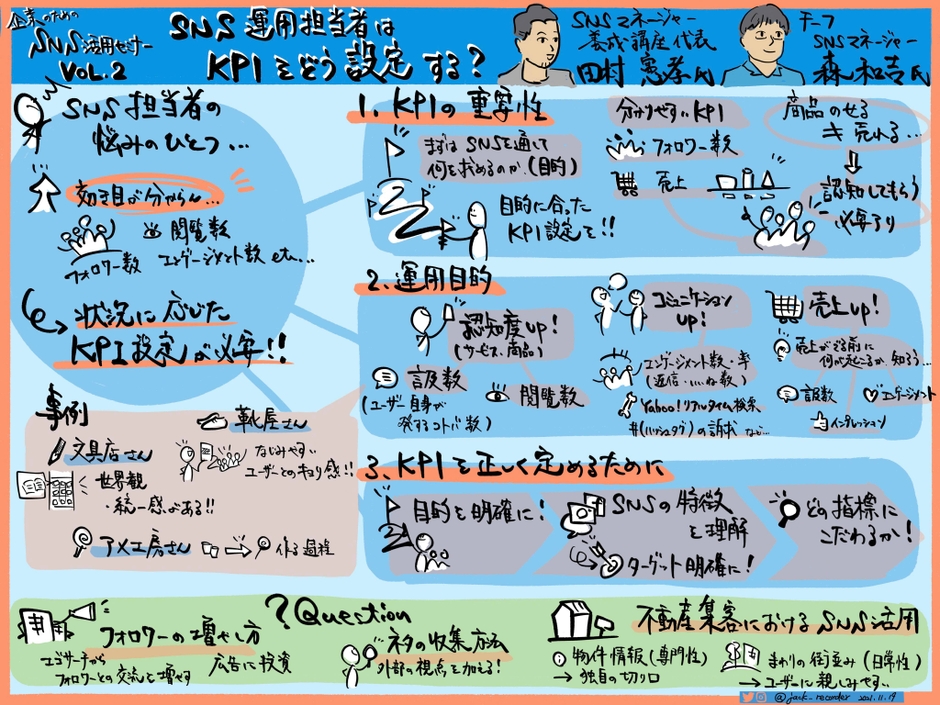 企業のための
SNS活用セミナー
VOL.2
SNS運用担当者は
KPIをどう設定する?
SNSマネージャー
養成講座代表
田村憲孝氏
チーフ
SNSマネージャー
森和吉氏
SNS担当者の
悩みのひとつ…
効き目が分からん…
フォロワー数
閲覧数
エンゲージメント数 etc…
状況に応じた
KPI設定が必要!!
事例
文具店さん
世界観
・統一感がある!!
靴屋さん
なじみやすい
ユーザーとのキョリ感!!
アメ工房さん
作る過程
1. KPIの重要性
まずはSNSを通して
何を求めるのか(目的)
目的に合った
KPI設定を!!
分りやすいKPI
フォロワー数
売上
商品のせる
≠ 売れる…
認知してもらう
必要アリ
2. 運用目的
認知度up!
(サービス、商品)
言及数
(ユーザー自身が
発するコトバ数)
閲覧数
コミュニケーション
UP!
エンゲージメント数・率
(返信・いいね数)
Yahoo!リアルタイム検索
#(ハッシュタグ)の訴求 など…
売上up!
売上がでる前に
何が起こるか知ろう…
言及数
エンゲージメント
インプレッション
3. KPIを正しく定めるために
目的を明確に!
SNSの特徴
を理解
ターゲット明確に!
どの指標に
こだわるか!
?Question
フォロワーの増やし方
エゴサーチから
フォロワーとの交流を増やす
広告に投資
ネタの収集方法
外部の視点を加える!
不動産集客におけるSNS活用
物件情報(専門性)
→ 独自の切り口
まわりの街並み(日常性)
→ ユーザーに親しみやすい
@jack_recorder 2021.11.19